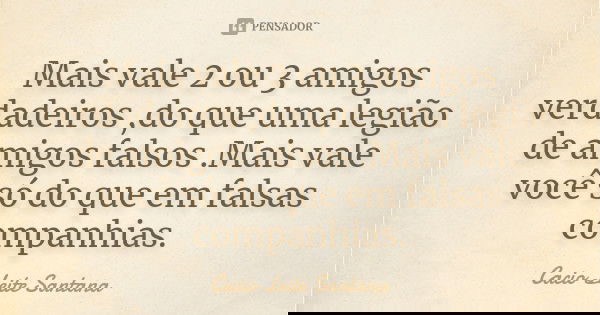 PENSADOR
Mais vale 2 ou 3 amigos
verdadeiros ,do que uma legião
de amigos falsos .Mais vale
você só do que em falsas
companhias.
Cacio Leite Santana